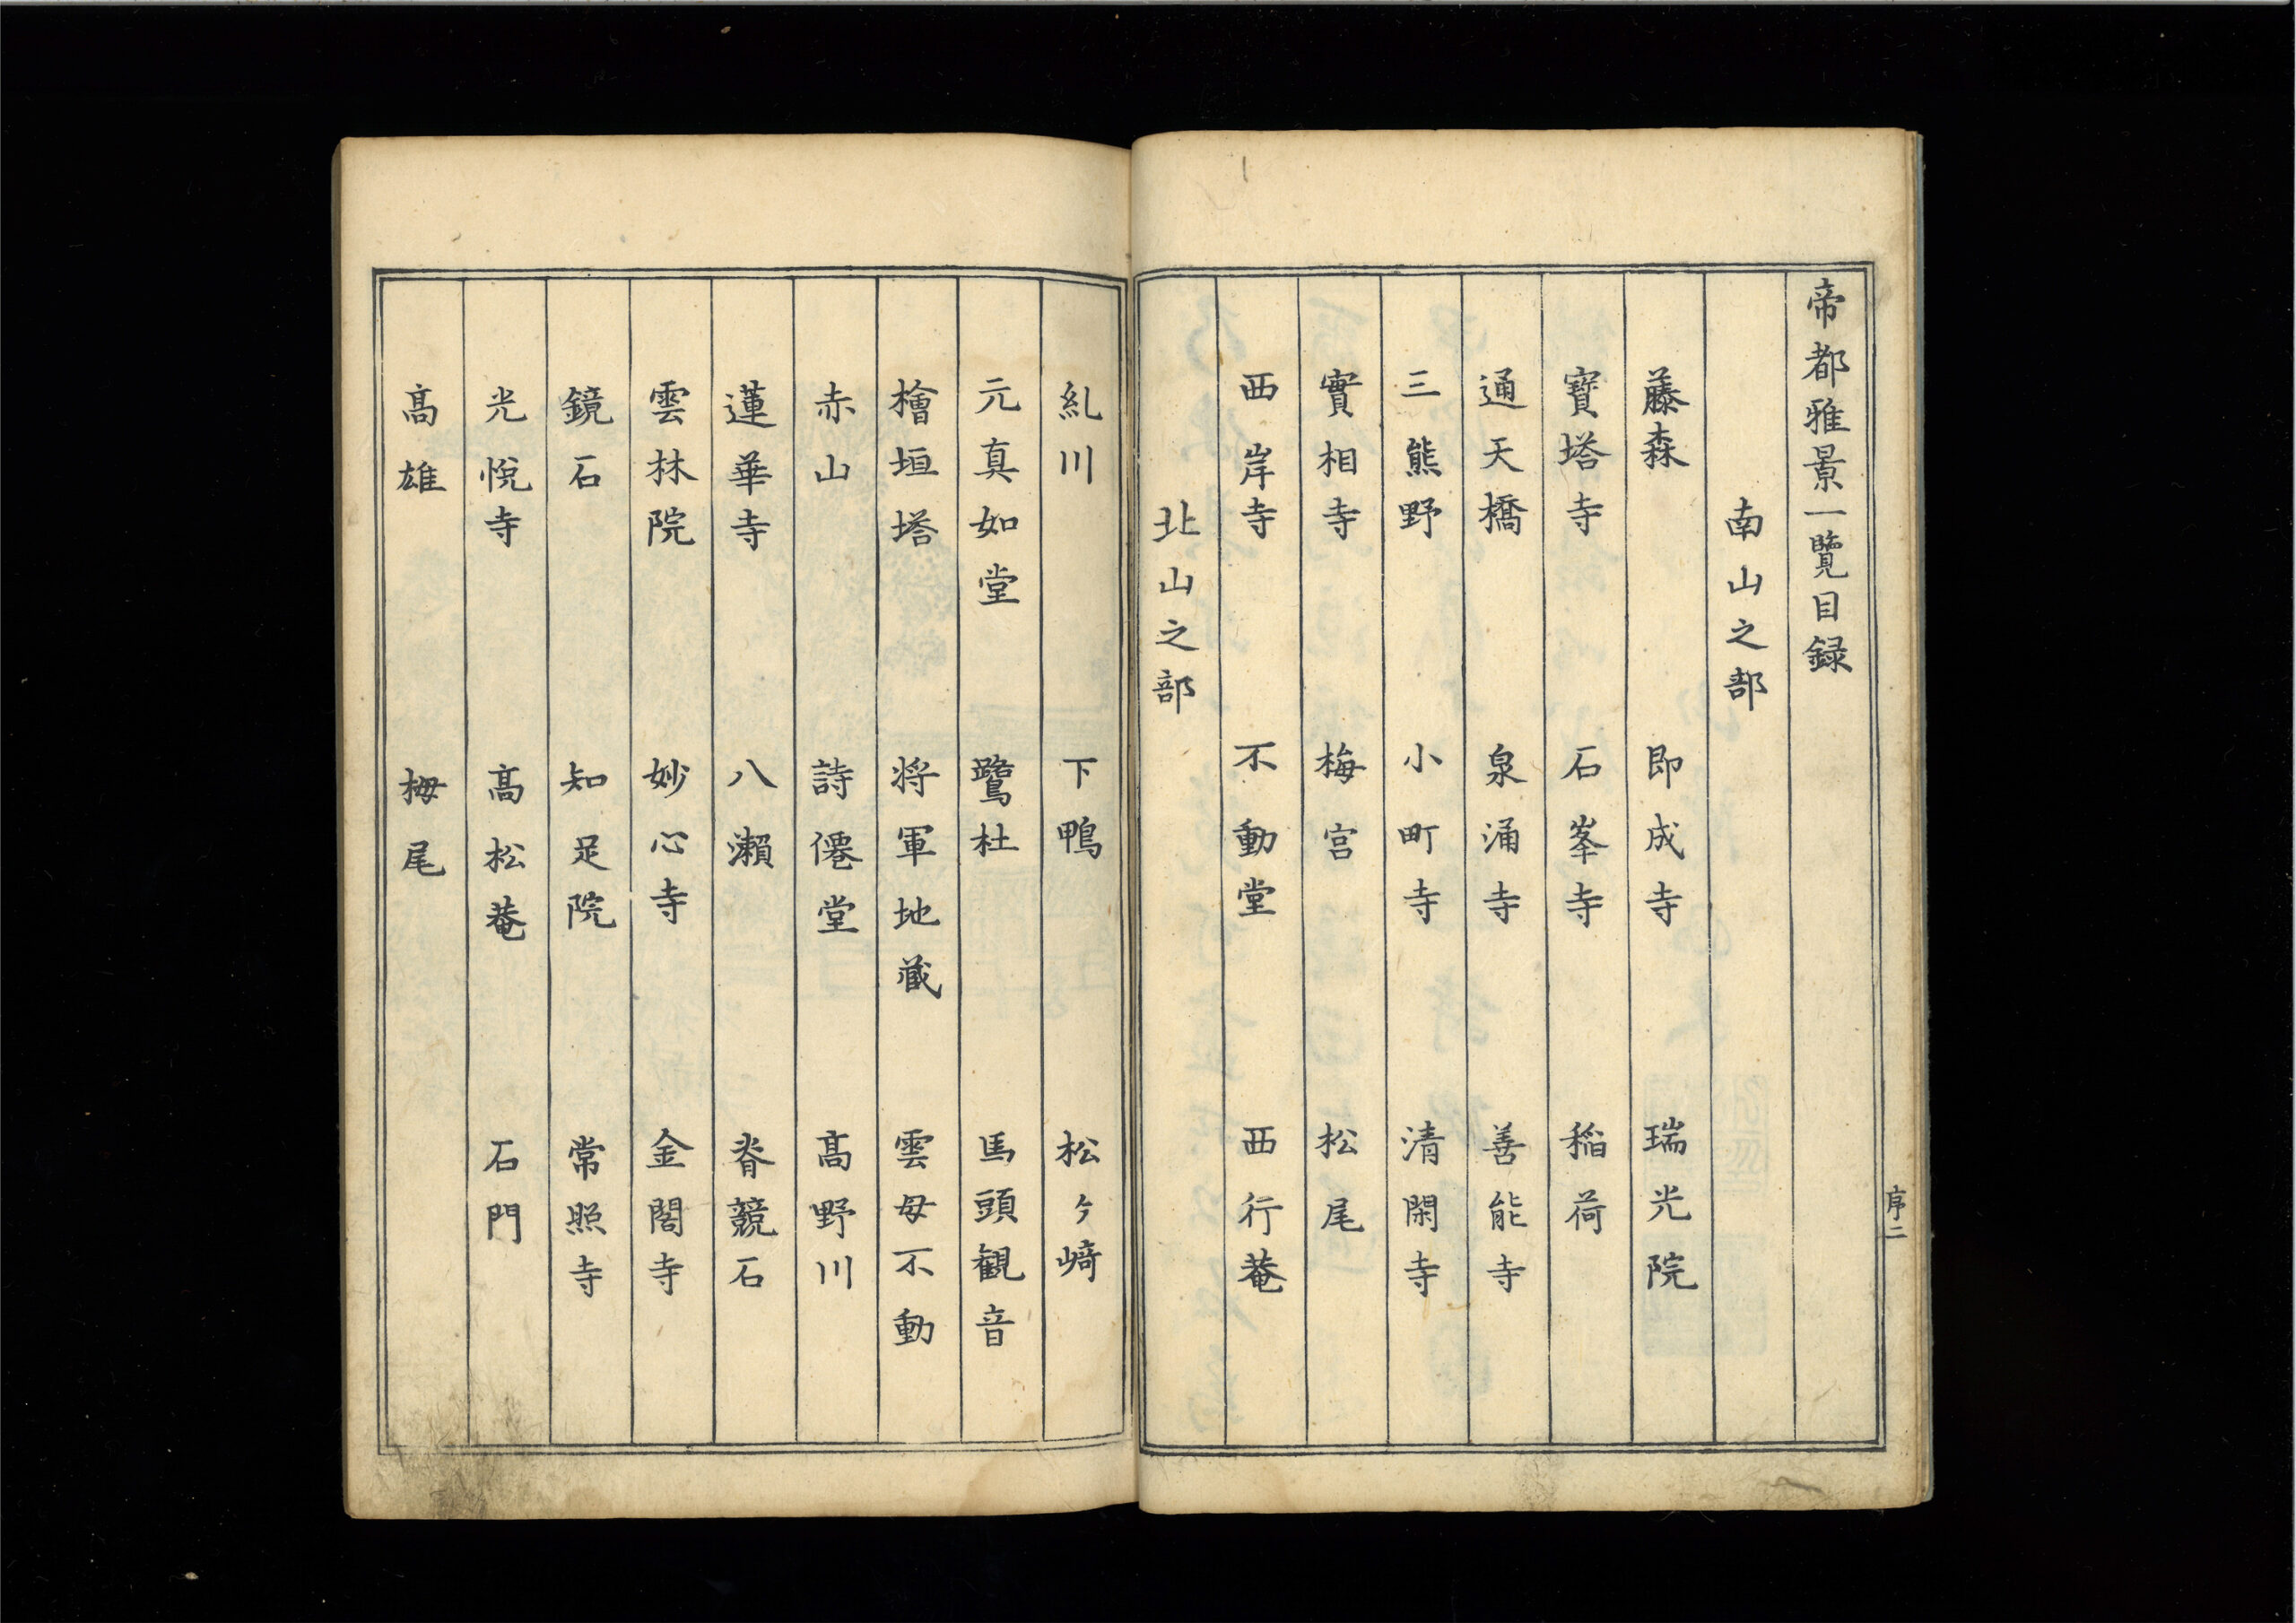 帝都雅景一覽目録
南山之部
藤森　即成寺　瑞光院
寳塔寺　石峯寺　稲荷
通天橋　泉涌寺　善能寺
三熊野　小町寺　清閑寺
實相寺　梅宮　松尾
西岸寺　不動堂　西行菴
北山之部
糺川　下鴨　松ヶ﨑
元真如堂　鷺杜　馬頭観音
檜垣塔　将軍地蔵　雲母不動
赤山　詩僊堂　髙野川
蓮華寺　八瀬　脊競石
雲林院　妙心寺　金閣寺
鏡石　知足院　常照寺
光悦寺　髙松菴　石門
髙雄　栂尾
序二